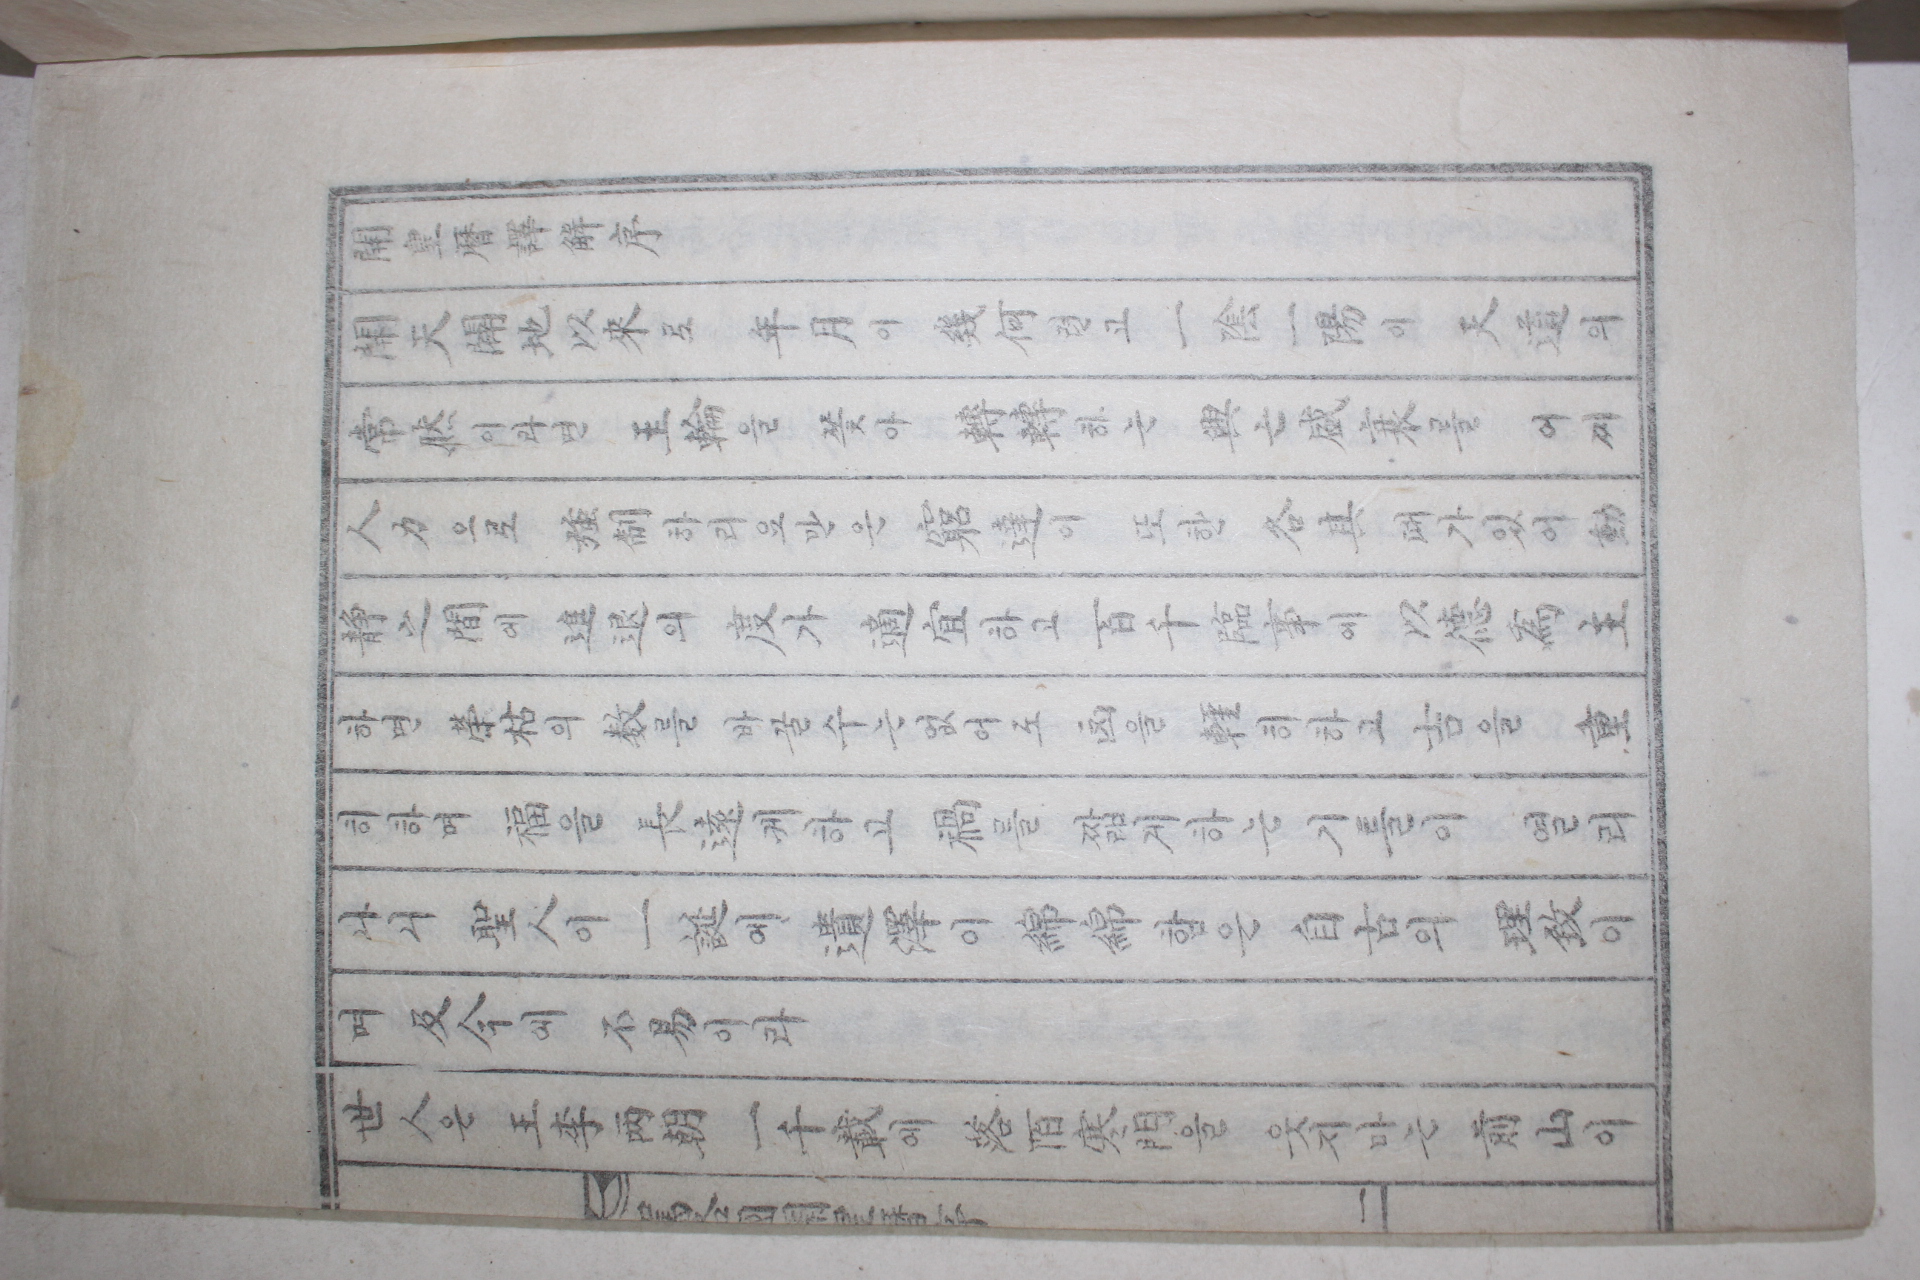 開皇曆譯解序
開天闢地以來로 年月이 幾何런고 一陰一陽이 天道의
常然이라면 王輪을 쫓아 轉轉하는 興亡盛衰를 어찌
人力으로 強制하리요만은 窮達이 또한 各其 때가있어 動
靜之間에 進退의 度가 適宜하고 百千臨事에 以德爲主
하면 榮枯의 数를 바꿀수는없어도 凶을 輕히하고 吉을 重
히하며 福을 長遠케하고 禍를 짧게하는 기틀이 열리
나니 聖人이 一誕에 遺澤이 綿綿함은 自古의 理致이
며 及今에 不易이라
世人은 王李兩朝 一千載에 落陌寒門을 웃지마는 前山이
駕洛國開皇曆序
二